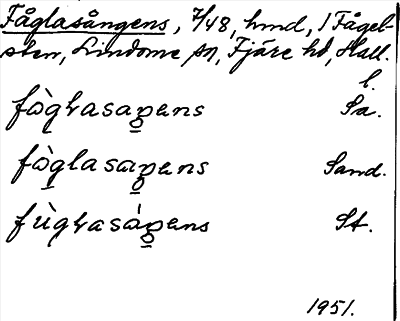 Fåglasångens, 7/48, hmd, i Fågel-
sten, Lindome sn, Fjäre hd, Hall.
l.
fòglasaŋens Sa.
fòglasaŋens Sand.
fùglasáŋens St.
1951.